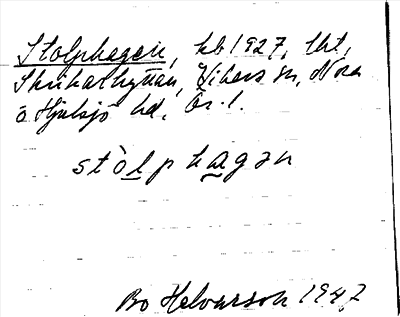 Stolphagen, hb 1927, tht,
Skrikarhyttan, Vikers sn, Nora
o Hjulsjö hd, Ör. l.
stòlphagən
Bo Helvarson 1947